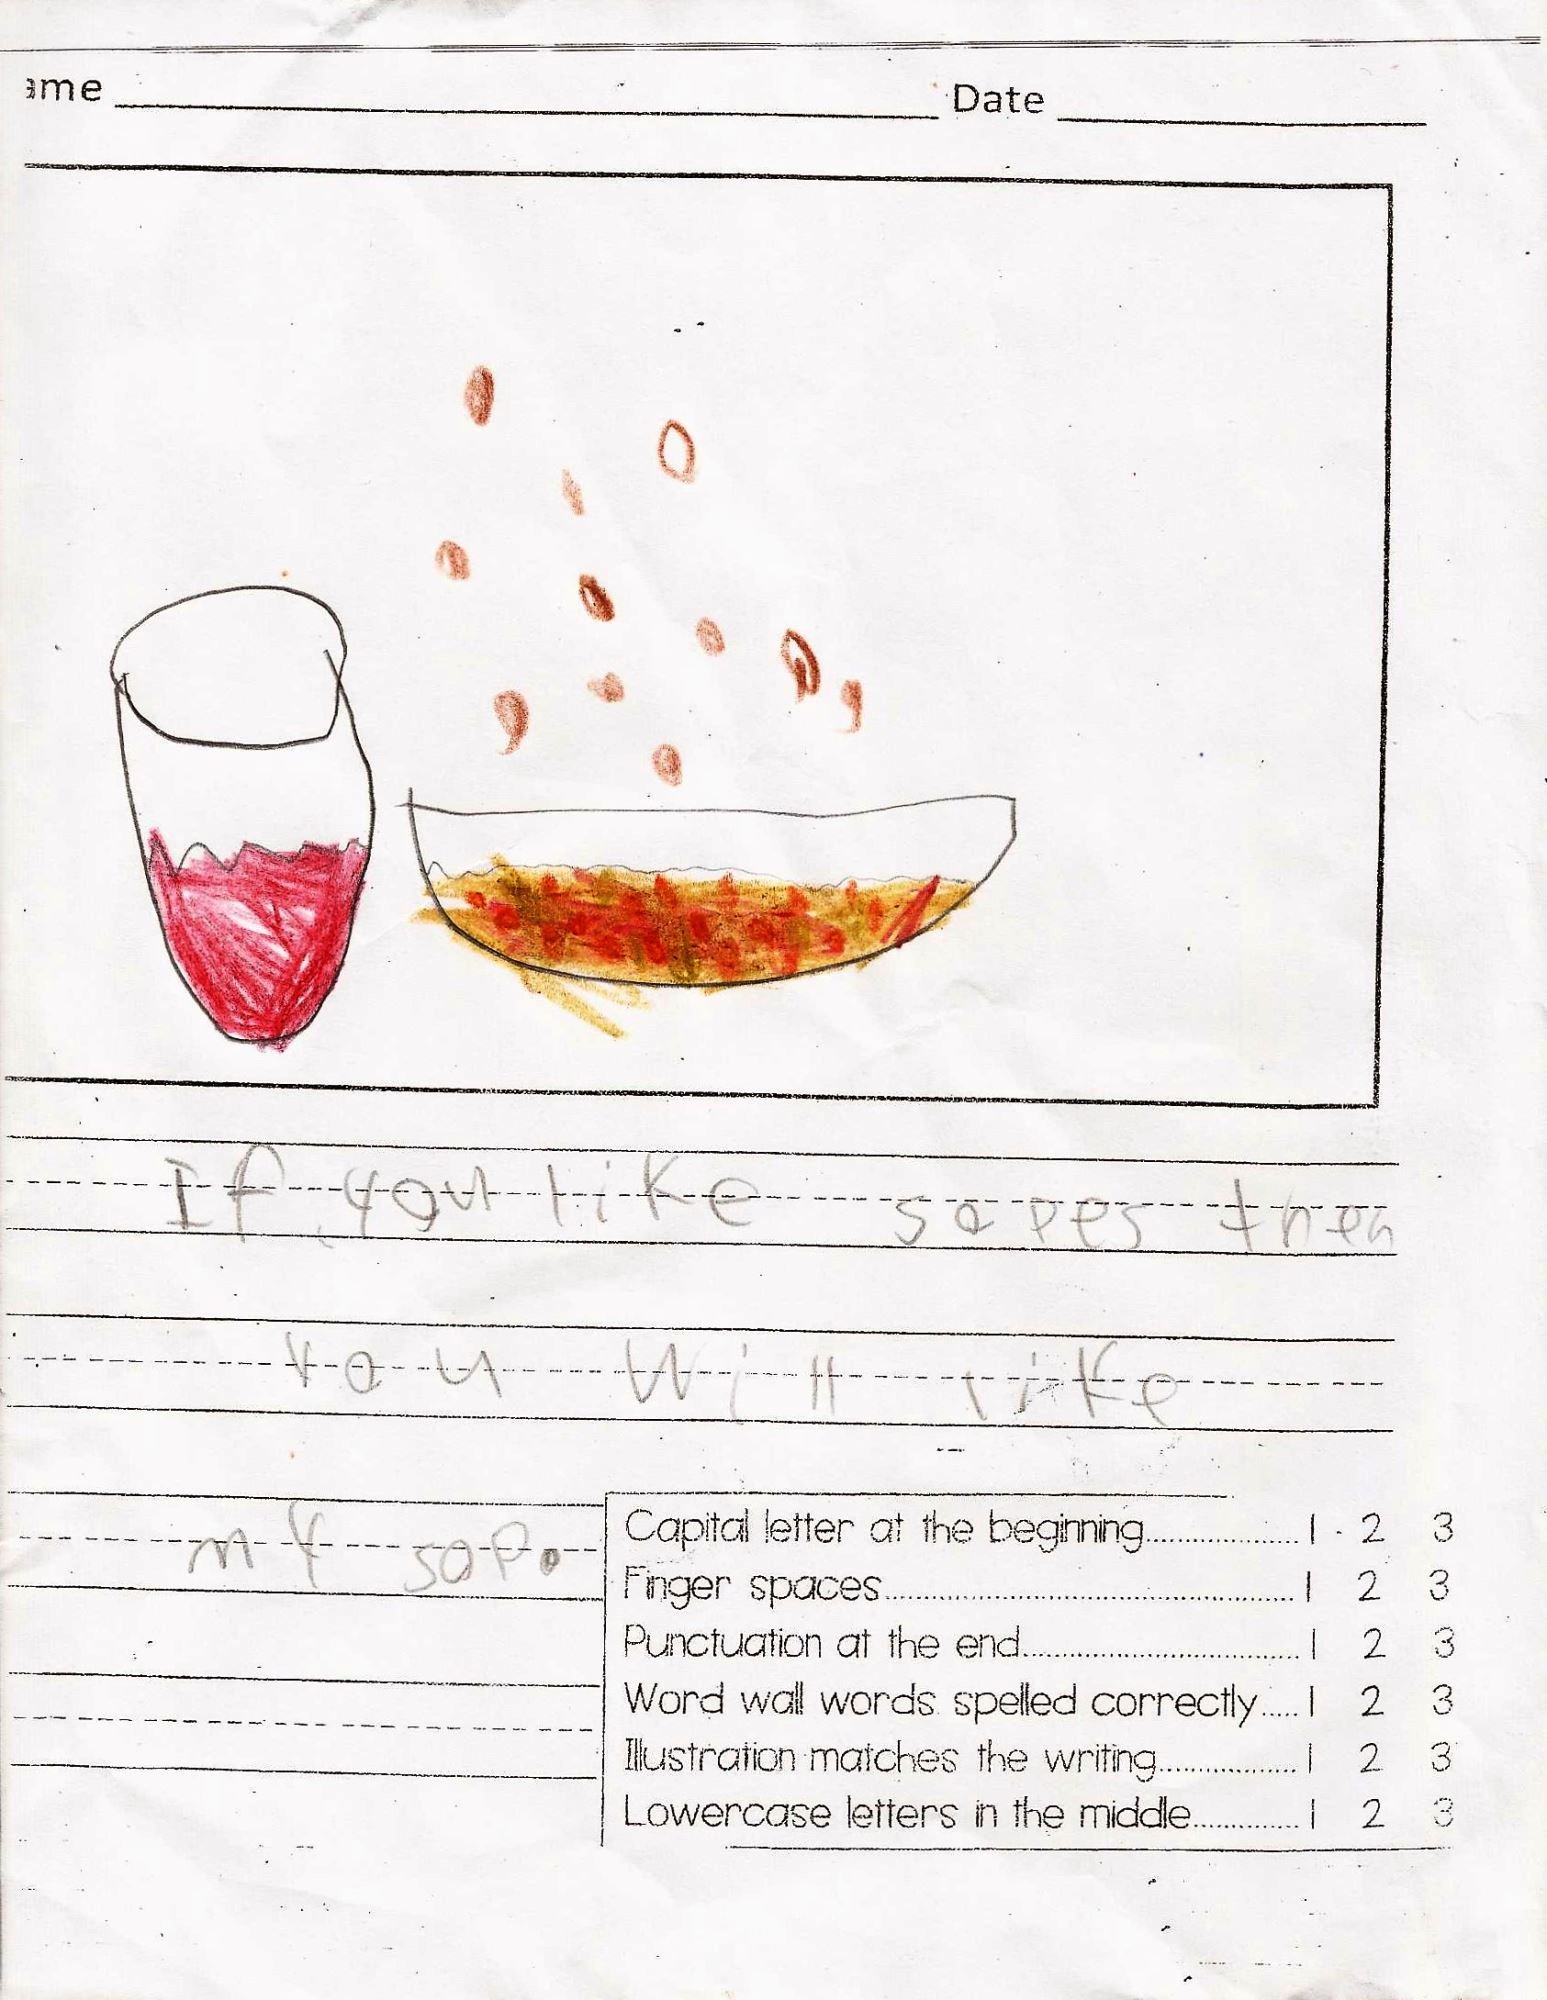 ame Date
If you like sopes then
you will like
my sope.
Capital letter at the beginning..................1 2 3
Finger spaces..................1 2 3
Punctuation at the end..................1 2 3
Word wall words spelled correctly.....1 2 3
Illustration matches the writing..................1 2 3
Lowercase letters in the middle..............1 2 3